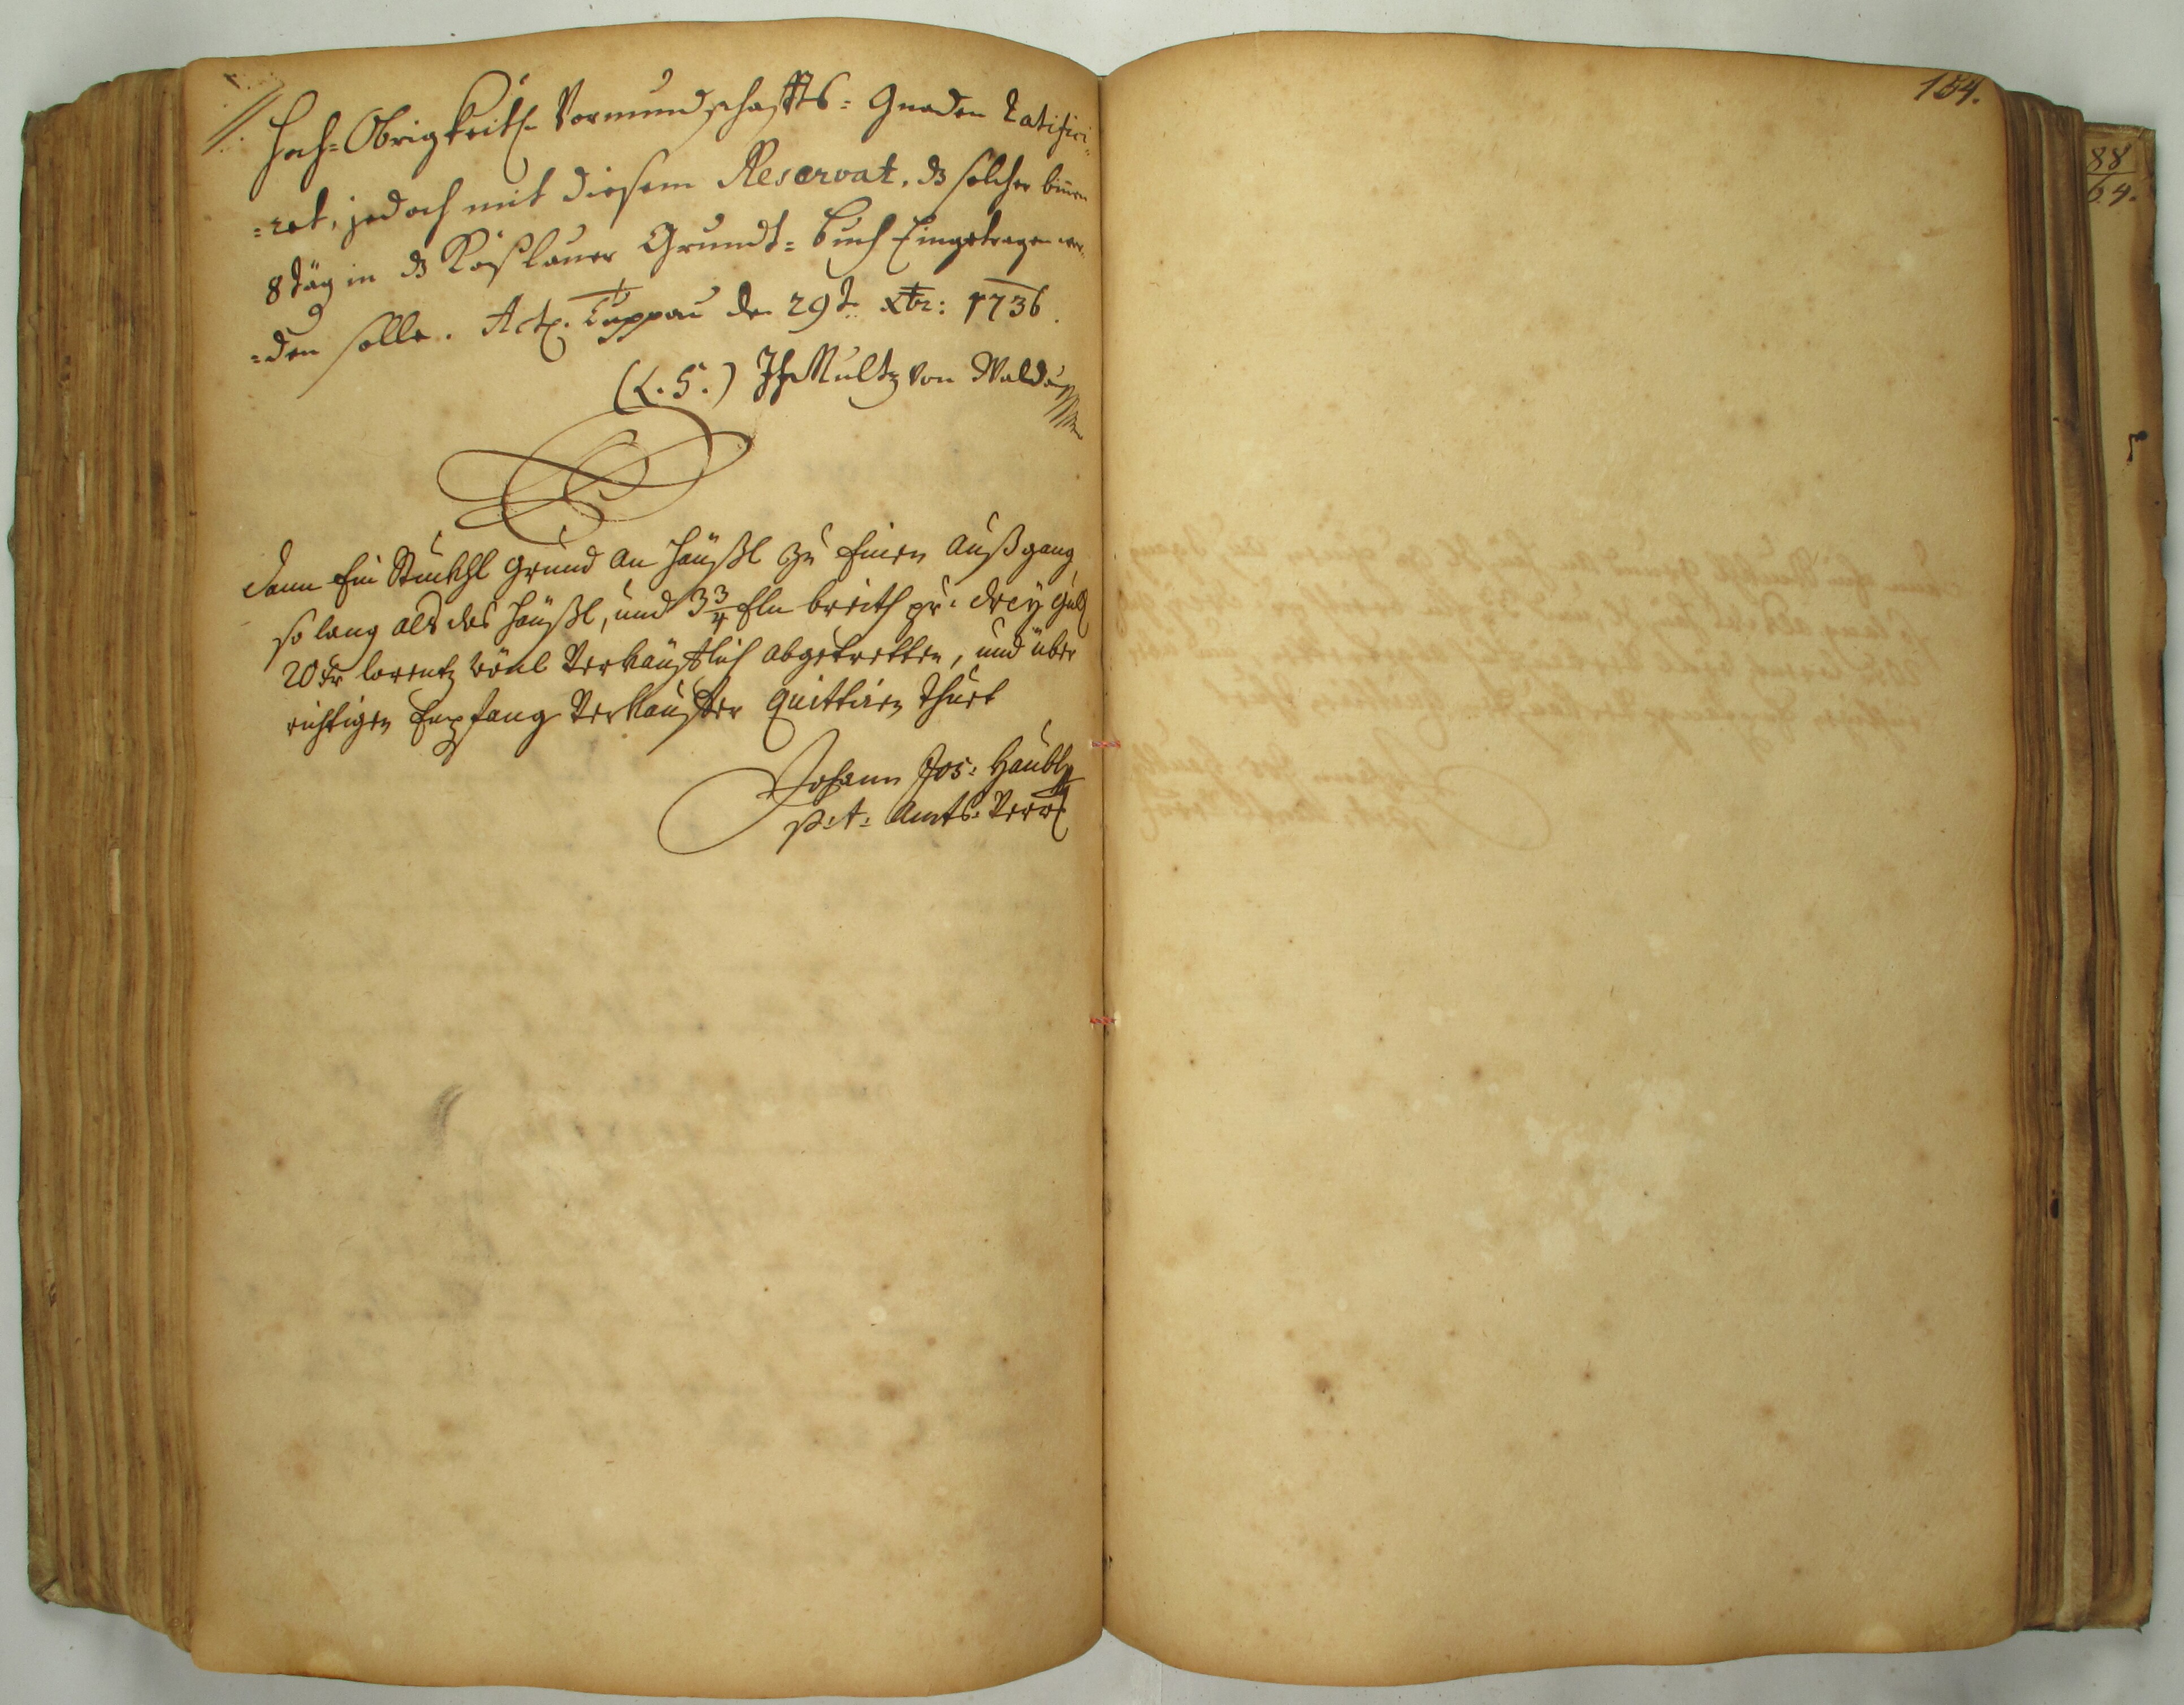 //. Hoch-Obrigkeitl. Vormundschaffts- Gnaden Ratifici-
-ret, jedoch mit diesem Reservat, dz solcher binnen
8 täg in dz Koßlauer Grundt-buch Eingetragen wer-
-den solle. Act. Duppau den 29t Xbr: 1736.
(L.S.) Multz von Waldau
dann Ein Stückhl grund an Häußl zu Einen außgang
so lang als das Häußl, und 3 3/4 Eln breith pr: drey guld
20 Xr lorentz verkäufflich abgetretten, und über
richtigen Empfang Verkäuffer quittiren thuet
Johann Jos: Häubl
p:t: Amts-Verw
154.
88
64.